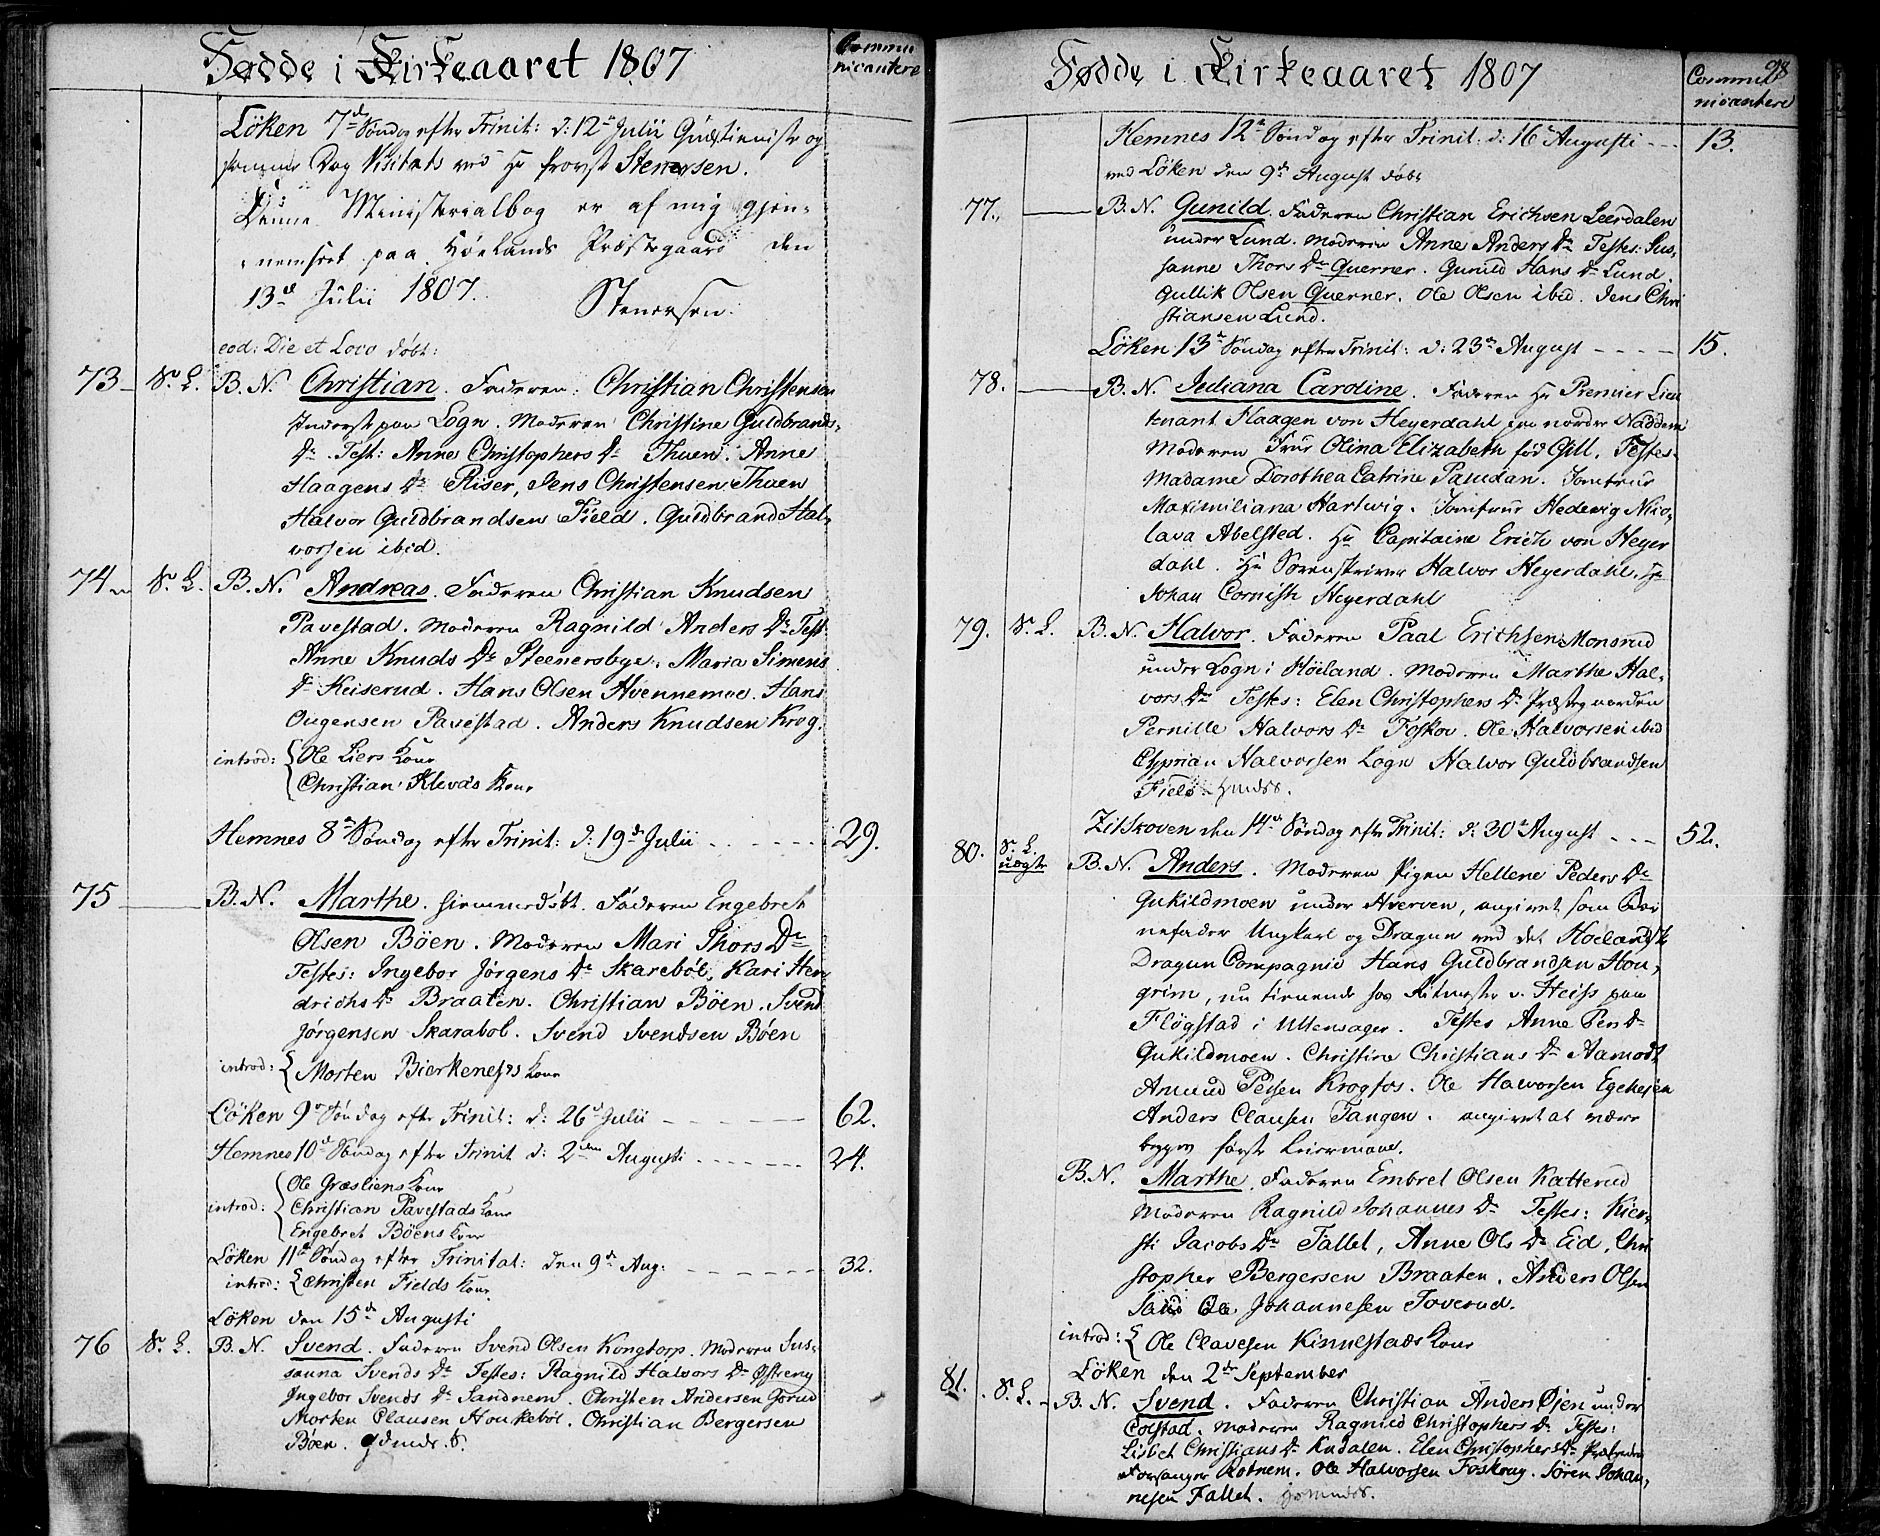 Fødde i Kirkeaaret 1807
Commu
nicantere
Löken 7de Søndag efter Trinit: d: 12te Julii
Dag Visitats ved Hr Provst Stenersen.
Denne Ministerialbog er af mig gjen-
nemseet paa Høelands Præstegaard den
13de Julii 1807. Stenersen.
eod: Die et Loco døbt:
73 S. L. B. N. Christian. Faderen: Christian Christensen
Inderst paa Logn. Moderen Christine Guldbrands-
Dr. Test: Anne Christophers Dr Thuen. Anne
Haagens Dr Riser, Jens Christensen Thuen
Halvor Guldbrandsen Field. Guldbrand Hal-
vorsen ibid.
74 S. L. B. N. Andreas. Faderen Christian Knudsen
Pavestad. Moderen Ragnild Anders Dr Test:
Anne Knuds Dr Steenersbye. Maria Simens
Dr Keiserud. Hans Olsen Hvennemoe. Hans
Ougensen Pavestad. Anders Knudsen Krog.
introd: { Ole Liers Kone
Christian Klevas Kone
Hemnes 8de Søndag efter Trinit: d: 19de Julii - - - 29.
75 B. N. Marthe. hiemmedøbt. Faderen Engebret
Olsen Böen. Moderen Mari Thors Dr
Testes: Ingebor Jørgens Dr Skareböl. Kari Hen-
drichs Dr Braaten. Christian Böen. Svend
Jørgensen Skarabol. Svend Svendsen Böen
introd: { Morten Bierkenes's Kone
Löken 9de Søndag efter Trinit: d: 26de Julii - - - 62.
Hemnes 10de Søndag efter Trinit d: 2den Augusti - - - 24.
introd: { Ole Græsliens Kone
Christian Pavestads Kone
Engebret Böens Kone
Löken 11te Søndag efter Trinitat: den 9de Aug: - - - 32.
introd: { Christen Fields Kone
Löken den 15de Augusti
76 S. L. B. N. Svend. Faderen Svend Olsen Kongtorp. Moderen Sus-
sanna Svends Dr Testes: Ragnild Halvors Dr Østreng
Ingebor Svends Dr Sandnem. Christen Andersen Gorud
Morten Clausen Houkeböl. Christian Bergersen
Böen.
Fødde i Kirkeaaret 1807
98
Commu
nicantere
Hemnes 12te Søndag efter Trinit: d: 16de Augusti - - - 13.
ved Löken den 9de August døbt
77. B. N. Gunild. Faderen Christian Erichsen Leerdalen
under Lund. Moderen Anne Anders Dr Testes: Sus-
sanne Thors Dr Querner. Gunild Hans Dr Lund.
Gullik Olsen Querner. Ole Olsen ibid. Jens Chri
stiansen Lund.
Löken 13de Søndag efter Trinit: d: 23de August - - - 15.
78. B. N. Juliana Caroline. Faderen Hr Premier Lieu
tenant Haagen von Heyerdahl paa nordre Naddem
Moderen Frue Olina Elizabeth fød Gill. Testes.
Madame Dorothea Catrine Paludan. Jomfrue
Maximiliana Hartwig. Jomfrue Hedewig Nico-
lava Abelsted. Hr Capitaine Erich von Heyer
dahl. Hr Sorenskriver Halvor Heyerdahl. Hr
Johan Cornish Heyerdahl
79. S. L. B. N. Halvor. Faderen Paal Erichsen Monsrud
under Logn i Höeland. Moderen Marthe Hal-
vors Dr Testes: Elen Christophers Dr Præstegaarden
Pernille Halvors Dr Foskou. Ole Halvorsen ibid
Cyprian Halvorsen Logn Halvor Guldbrandsen
Field
Zitskoven den 14de Søndag efter Trinit: d: 30te August - - - 52.
80. S. L. uægte B. N. Anders. Moderen Pigen Hellene Peders Dr
Gukildmoen under Hverven, angivet som Bar
nefader Ungkarl og Dragun ved det Hoelandske
Dragun Compagnie Hans Guldbrandsen Hou-
grim, nu tienende hos Ritmester v. Heiss paa
Fløgstad i Ullensager. Testes Anne Pens Dr
Gukildmoen. Christine Christians Dr Aamodt
Amund Persen Krogfos. Ole Halvorsen Egebesen
Anders Clausen Tangen. angivet at være
begges første Leiermaal.
B. N. Marthe. Faderen Embret Olsen Katterud
Moderen Ragnild Johannes Dr Testes: Kier-
sti Jacobs Dr Fallet, Anne Ols Dr Eid, Chri
stopher Bergersen Braaten. Anders Olsen
Ole Johannesen Toverud.
introd: { Ole Clavesen Kinnestads Kone
Löken den 2de September
81. S. L. B. N. Svend. Faderen Christian Anders Øjen under
Colstad. Moderen Ragnild Christophers Dr Testes:
Lisbet Christians Dr Kudalen. Elen Christophers Dr
Forsanger Rotnem. Ole Halvorsen Foskoug. Søren Johan-
nesen Fallet.